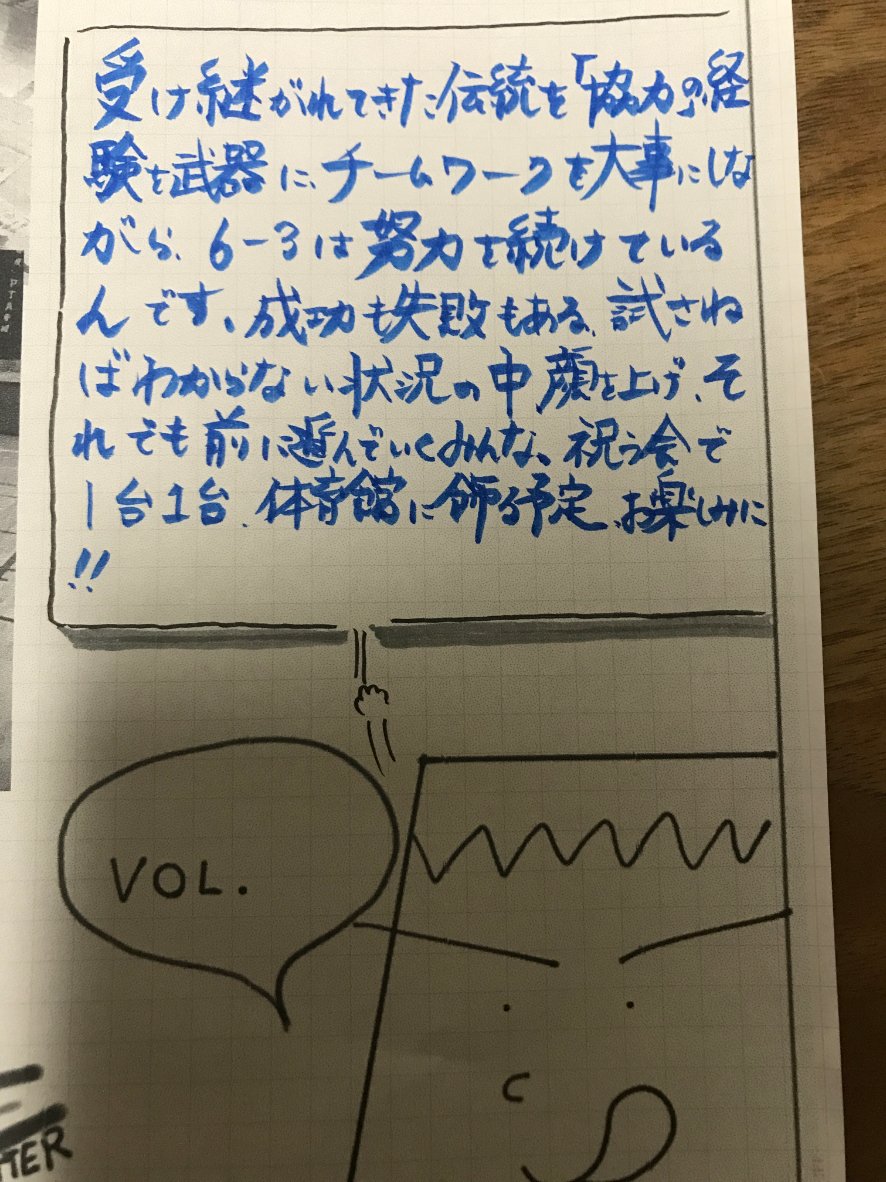 受け継がれてきた伝統を「協力」の経
験を武器に、チームワークを大事にしな
がら、6-3は努力を続けている
んです、成功も失敗もある、試さね
ばわからない状況の中、顔を上げ、そ
れでも前に進んでいくみんな、祝う会で
1台1台、体育館に飾る予定、お楽しみに
!!
VOL.
TTER